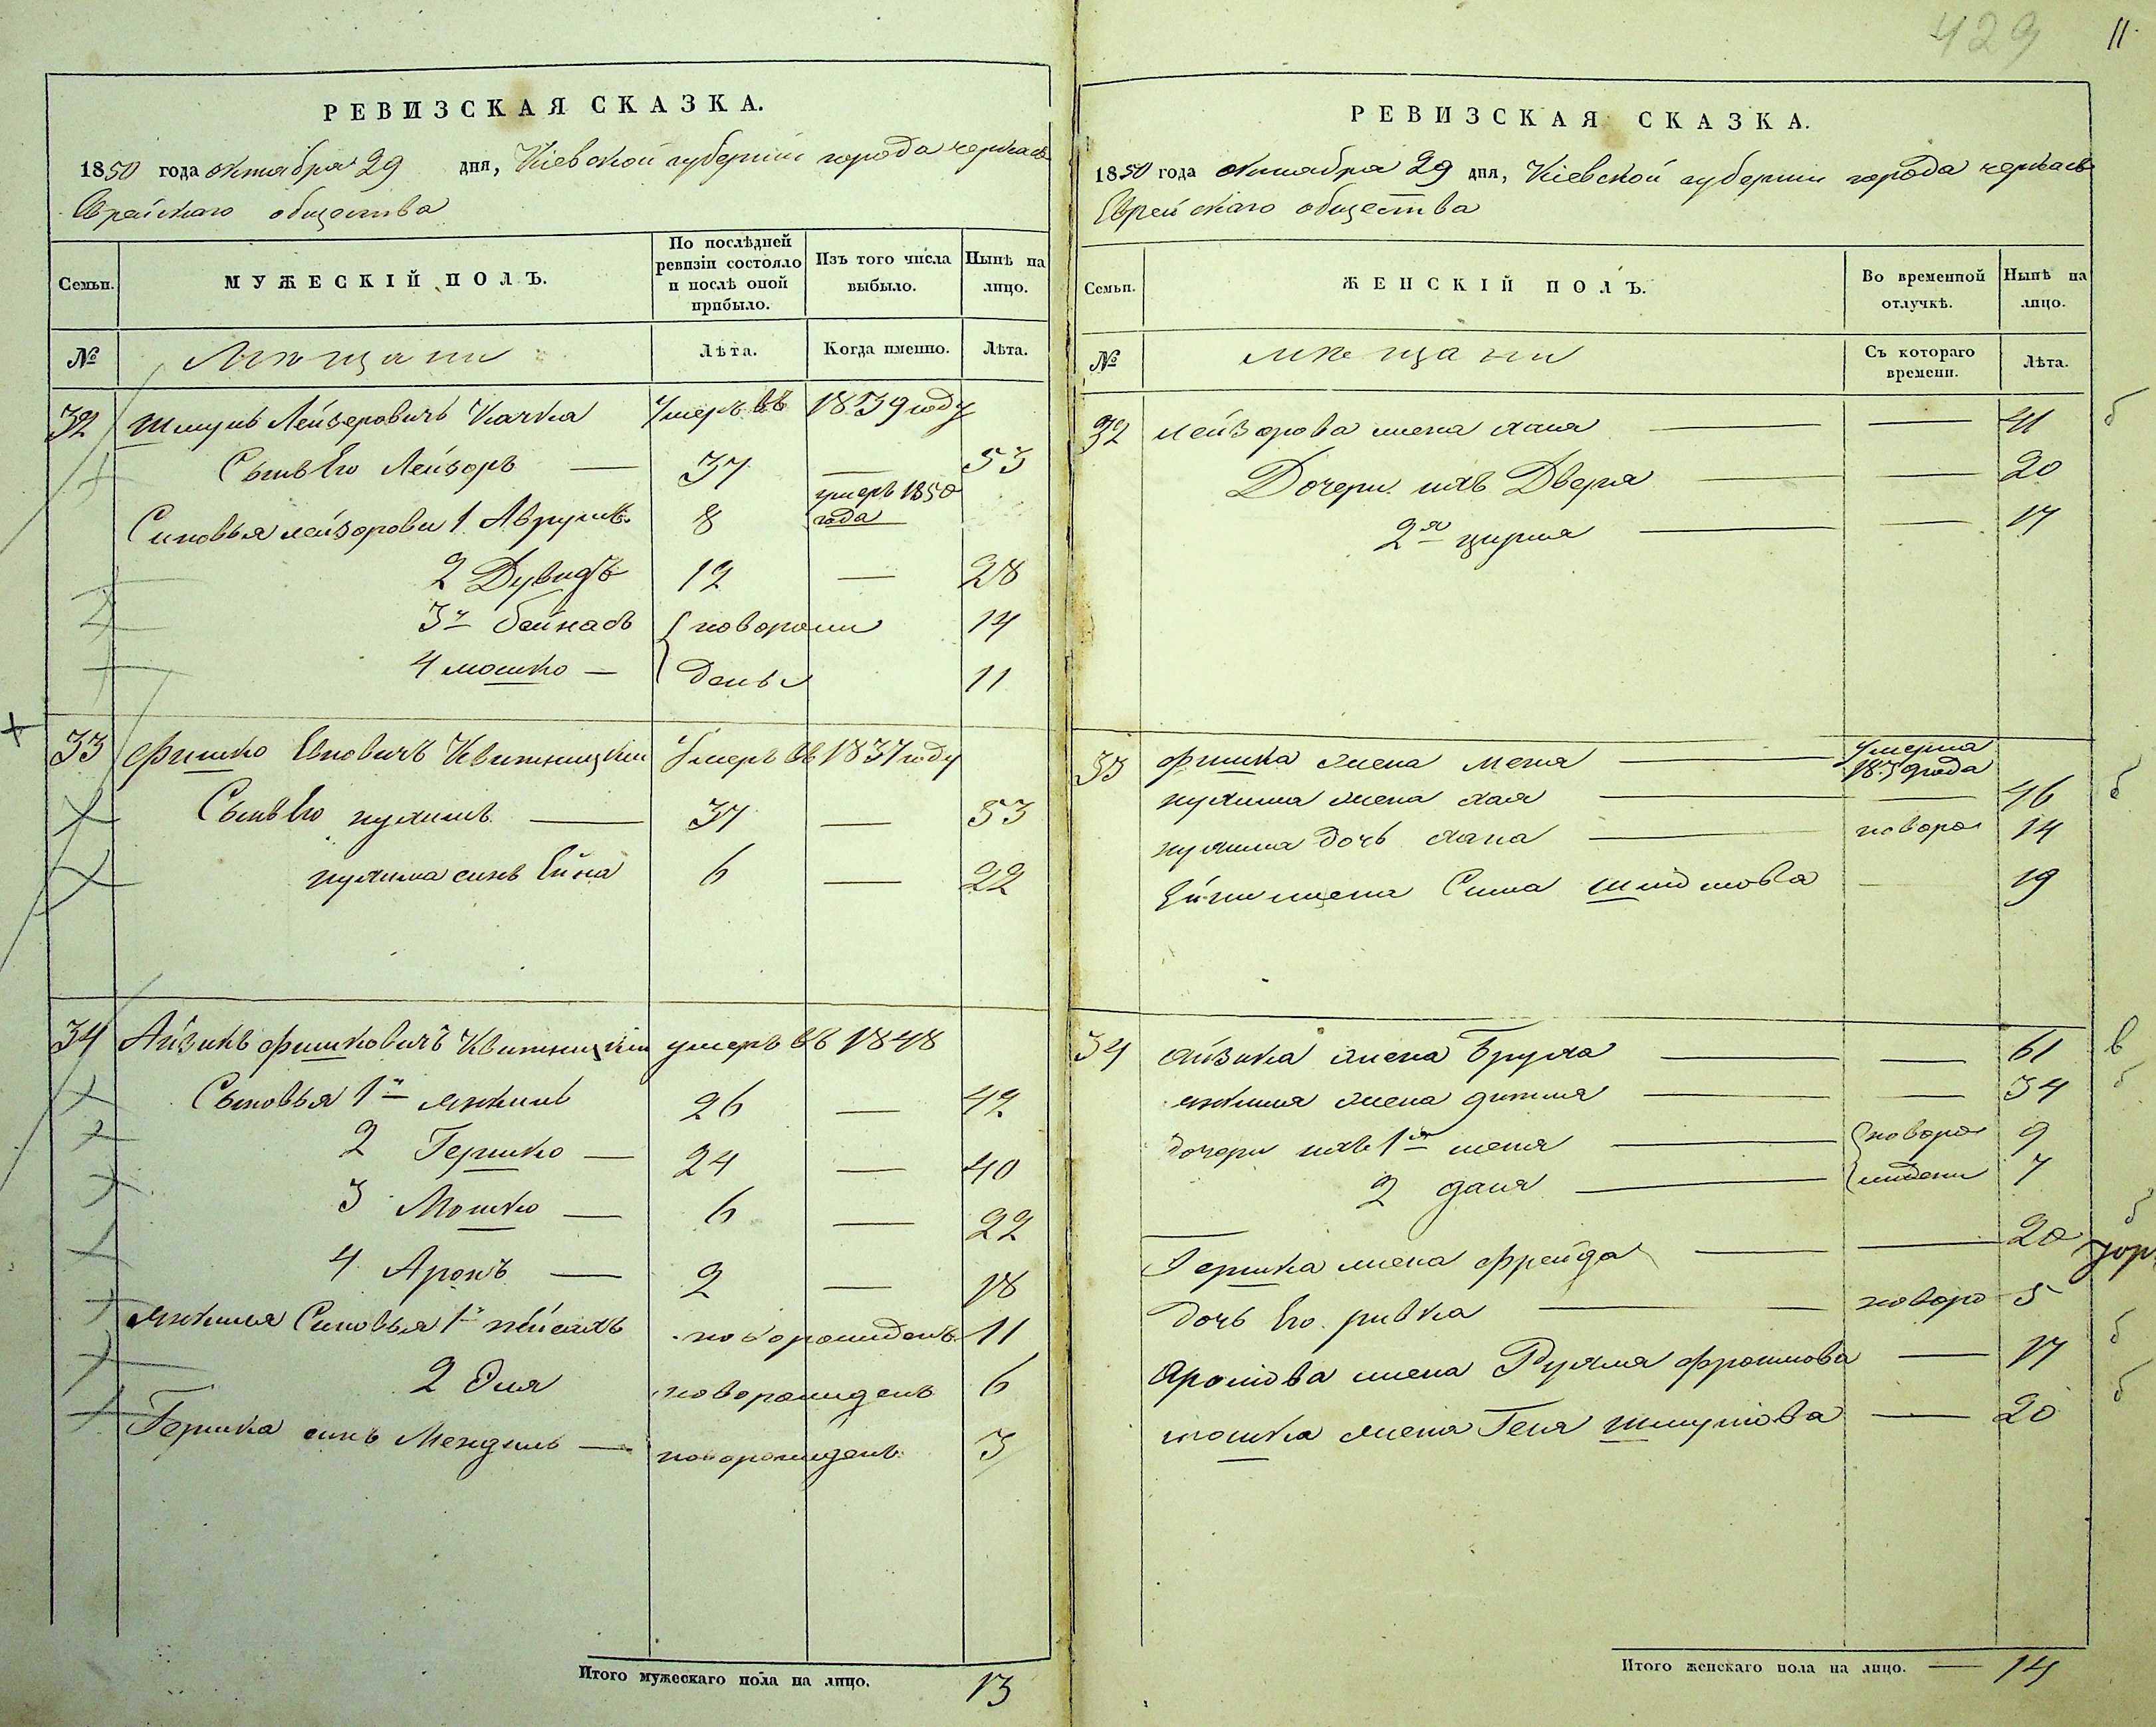 429 11
РЕВИЗСКАЯ СКАЗКА.
1850 года октября 29 дня, Кіевской губерніи города черкасъ
Еврейскаго общества
Семьи. МУЖЕСКІЙ ПОЛЪ. По послѣдней ревизіи состояло и послѣ оной прибыло. Изъ того числа выбыло. Нынѣ на лицо.
№ Мѣщани Лѣта. Когда именно. Лѣта.
32 Шмуль Лейзеровичъ Качка Умеръ въ 1839 году
Сынъ Его Лейзоръ — 37 — 53
Синовья лейзорови 1 Аврумъ 8 умеръ 1850 года
2 Дувидъ 12 — 28
3й бейнасъ новорожденъ 14
4 мошко — 11
33 Фишко Евновичъ Квитницкій Умеръ въ 1837 году
Сынъ Его нухимъ — 37 — 53
нухима синъ Ейна 6 — 22
34 Айзикъ фишковичъ Квитницкій умеръ въ 1848
Сыновья 1й 26 — 42
2 Гершко — 24 — 40
3 Мошко — 6 — 22
4 Аронъ — 2 — 18
Синовья 1й пейсахъ новорожденъ 11
2 Эля новорожденъ 6
Гершка синъ Мендель — новорожденъ 3
Итого мужескаго пола на лицо. 13
РЕВИЗСКАЯ СКАЗКА.
1850 года октября 29 дня, Кіевской губерніи города черкасъ
Еврейскаго общества
Семьи. ЖЕНСКІЙ ПОЛЪ. Во временной отлучкѣ. Нынѣ на лицо.
№ мѣщани Съ котораго времени. Лѣта.
32 лейзорова жена хана — — 41 б
Дочери ихъ Двера — — 20
2я ципра — — 17
33 фишка жена меня — умерла 1839 года
нухима жена хая — — 46 б
нухима дочь хана — новоро 14
Ейни жена Сима — 19
34 айзика жена Бруха — — 61 в
жена — — 34 б
дочери ихъ 1я — новорожидени 9
2 — 7
Гершка жена фрейда — — 20 б
дочь Его ривка — новоро 5
Аронова жена Рухля — 17 б
мошка жена Геня шмулова — 20 б
Итого женскаго пола на лицо. — 14